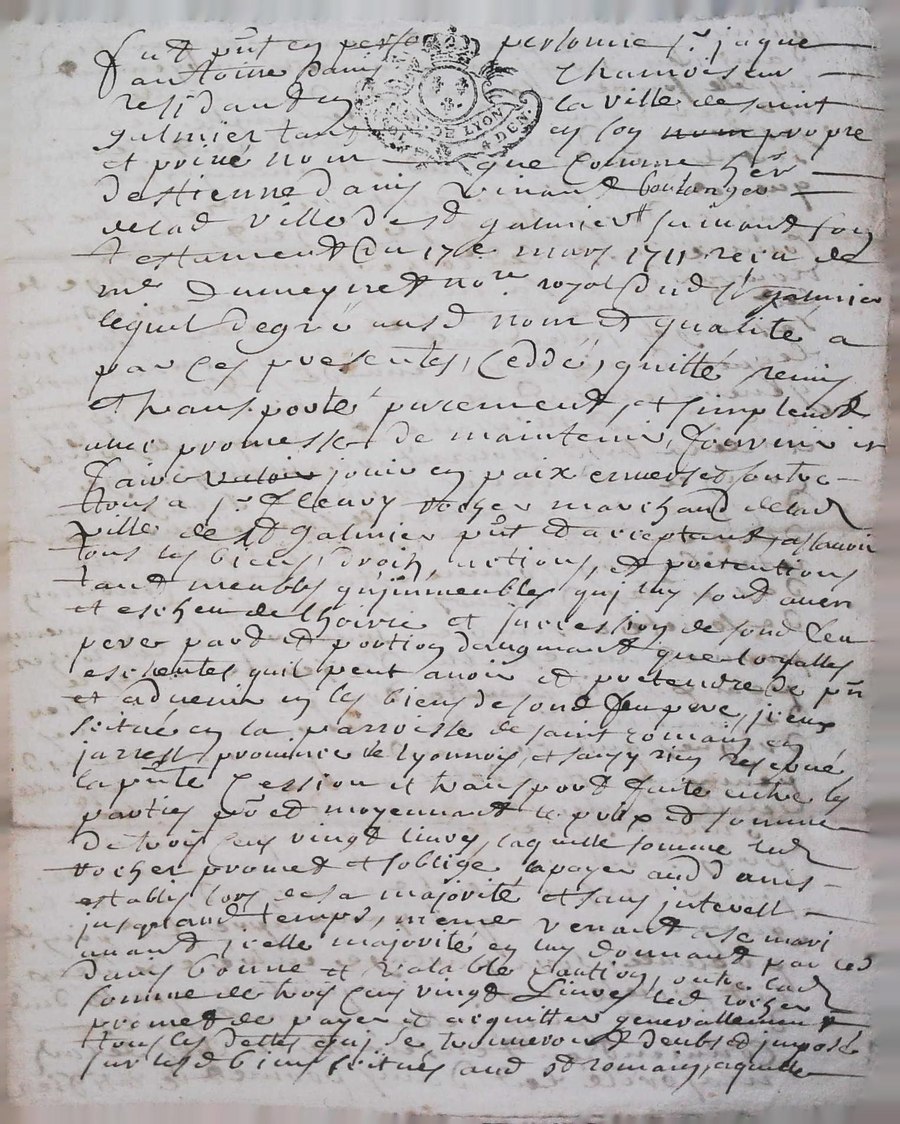 fut pnt en perso personne sr jaque
antoine Davis Chamoiseur
residant en la ville de saint
galmier tant en son nom propre
et privé nom que comme her
destienne Davis vivant boulanger
delad ville de st galmier suivant son
testament du 17e mars 1711 receu de
me Dumeynet nore royal dud st galmier
lequel de gré ausd nom et qualité a
par ces presentes, ceddé, quitté remis
et transporté purement, et simplemt
avec promesse de maintenir, fournir et
faire valoir jouir en paix envers et contre
tous a sr fleury rocher marchand delad
ville de st Galmier pnt et acceptant, assavoir
tous les biens, droits, actions, et pretentions
tant meubles qu'jmmeubles quj luy sont aven
et escheu de lhoirie et succession de sond feu
pere part et portion daugmant que loyalles
escheutes quil peut avoir et pretendre de pnt
et advenir en les biens de sond feu pere, jceux
scitué en la parroisse de saint romain en
jarrest province de lyonnois, et sans y rien reservé,
la pnte Cession et transport faite entre les
parties pnt et moyennant le prix et somme
de trois cens vingt livres, laquelle somme led
rocher promet et soblige a payer aud Davis
establis lors de sa majorité et sans jnterest
jusqu'aud temps, meme venant a se mari
avant jcelle majorité en luy donnant par led
Davis bonne et valable caution, outre lad
somme de trois cens vingt Livres led rocher
promet de payer et acquitter generallement
tous les dettes quj se trouveront deubs et jmposés
sur lesd biens scitués aud st romain, laquelle